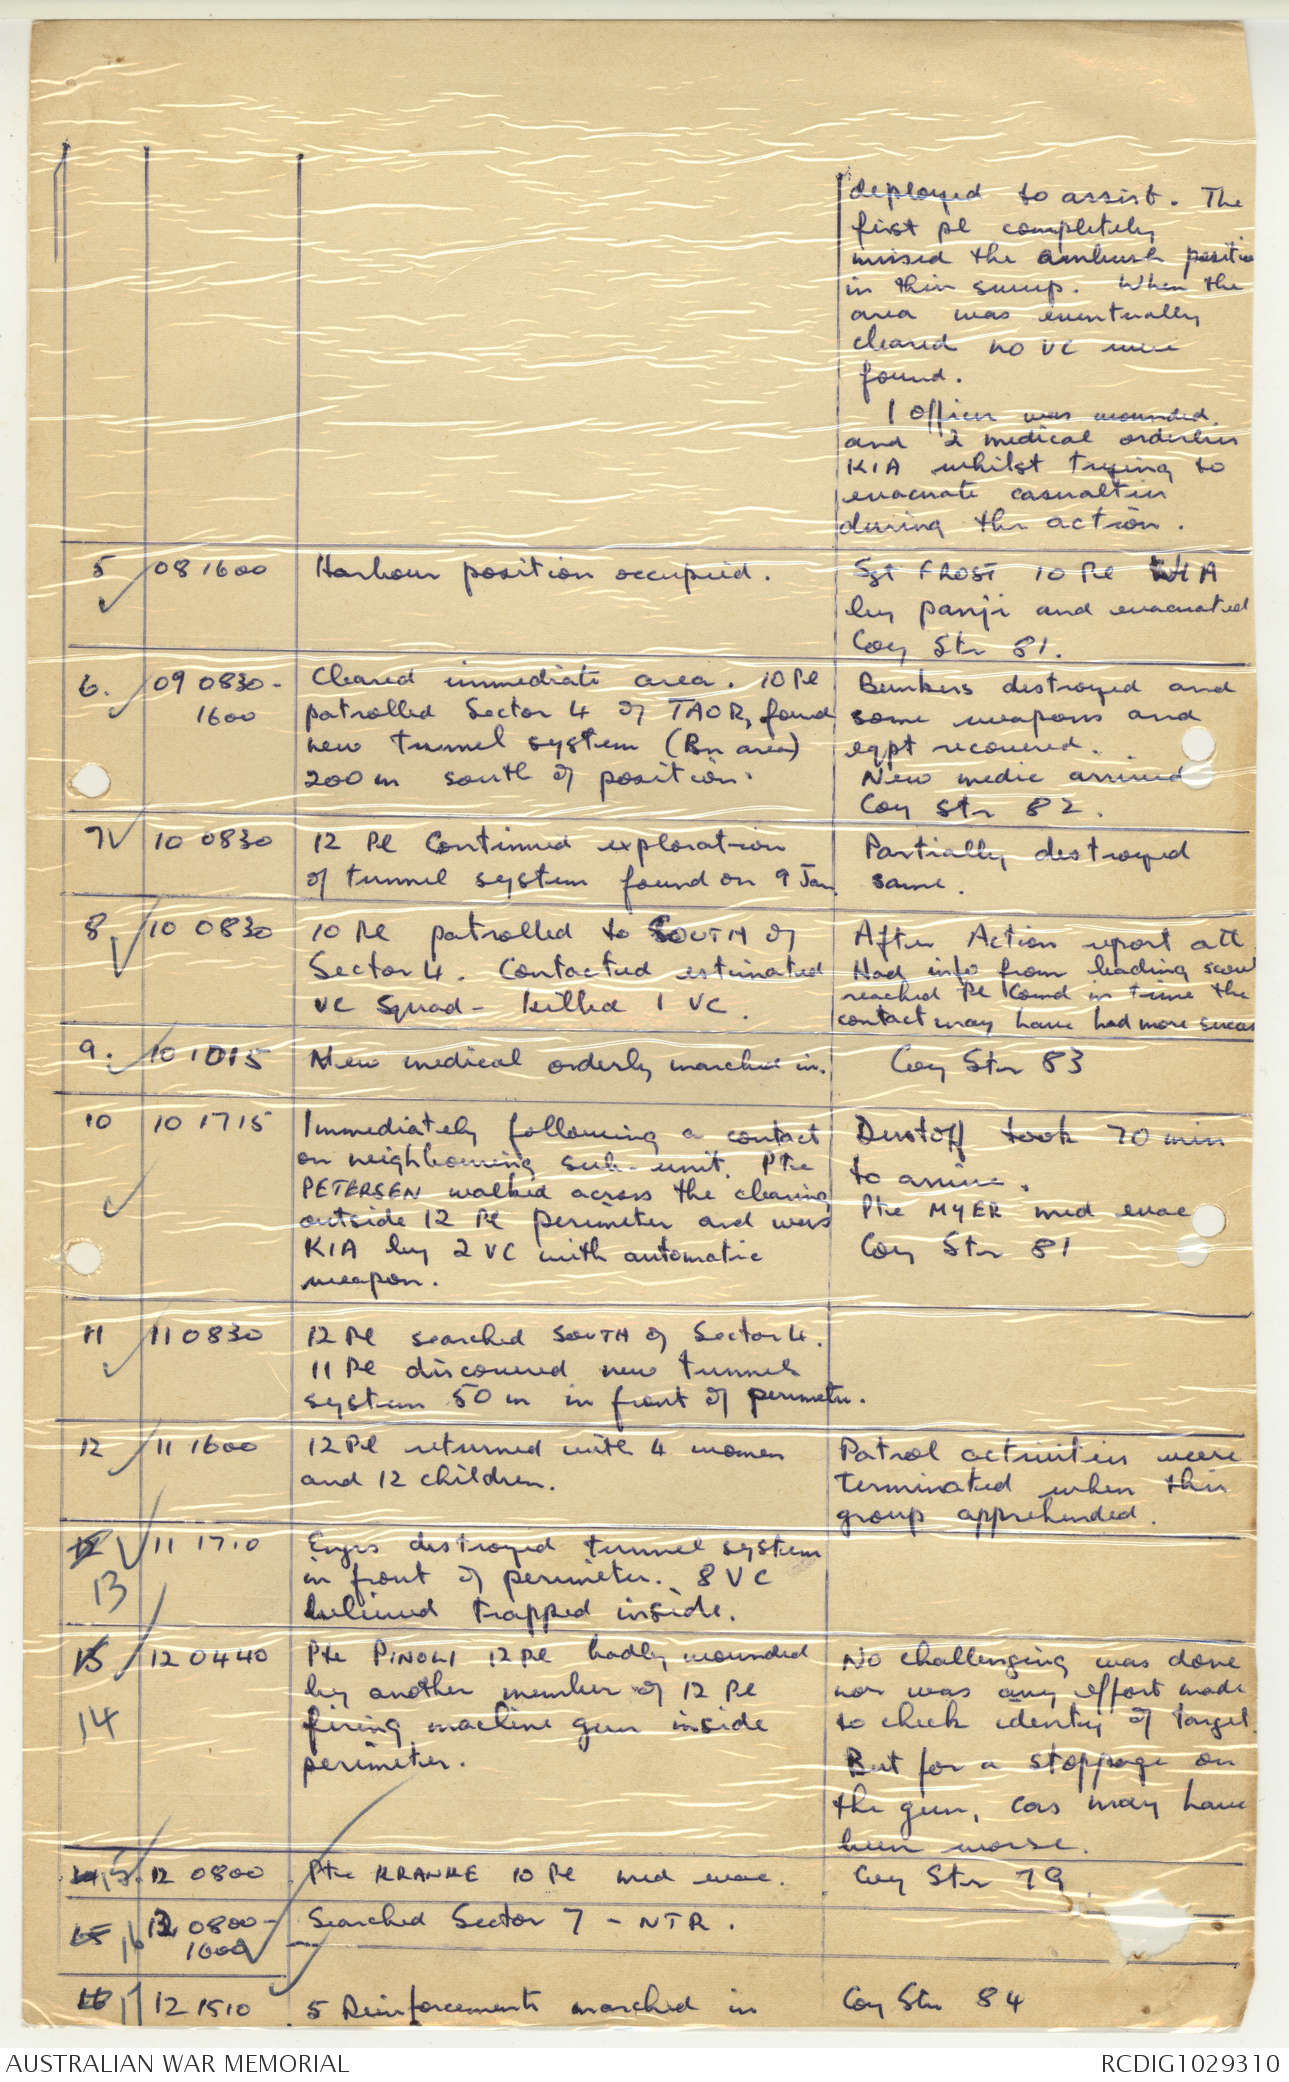 deployed to assist. The
first pl completely
missed the ambush positio
in their sweep. When the
area was eventually
cleared no VC were
found.
1 Officer was wounded
and 2 medical orderlies
KIA whilst trying to
evacuate casualties
during the action.
5 08 1600 Harbour position occupied.
Sgt FROST 10 Pl WIA
by panji and evacuated
Coy Str 81.
6. 09 0830-
1600
Cleared immediate area. 10 Pl
patrolled Sector 4 of TAOR, found
new tunnel system (Bn area)
200 m south of position.
Bunkers destroyed and
some weapons and
eqpt recovered.
New medic arrived
Coy Str 82.
7 10 0830 12 Pl Continued exploration
of tunnel system found on 9 Jan.
Partially destroyed
same.
8 10 0830 10 Pl patrolled to SOUTH of
Sector 4. Contacted estimated
VC Squad - killed 1 VC.
After Action report att
Had info from leading scout
reached Pl Comd in time the
contact may have had more succes
9. 10 1015 New medical orderly marched in.
Coy Str 83
10 10 1715 Immediately following a contact
on neighbouring sub-unit, Pte
PETERSEN walked across the clearing
outside 12 Pl perimeter and was
KIA by 2 VC with automatic
weapon.
Dustoff took 70 min
to arrive.
Pte MYER med evac
Coy Str 81
11 11 0830 12 Pl searched SOUTH of Sector 4.
11 Pl discovered new tunnel
system 50 m in front of perimeter.
12 11 1600 12 Pl returned with 4 women
and 12 children.
Patrol activities were
terminated when this
group apprehended.
13 11 1710 Engrs destroyed tunnel system
in front of perimeter. 8 VC
believed trapped inside.
15 12 0440
14
Pte PINOLI 12 Pl badly wounded
by another member of 12 Pl
firing machine gun inside
perimeter.
No challenging was done
nor was any effort made
to check identy of target.
But for a stoppage on
the gun, cas may have
been worse.
14 15. 12 0800 Pte KRANKE 10 Pl med evac.
Coy Str 79.
15 16 12 0800-
1600
Searched Sector 7 - NTR.
16 17 12 1510 5 Reinforcements marched in
Coy Str 84
AUSTRALIAN WAR MEMORIAL
RCDIG1029310